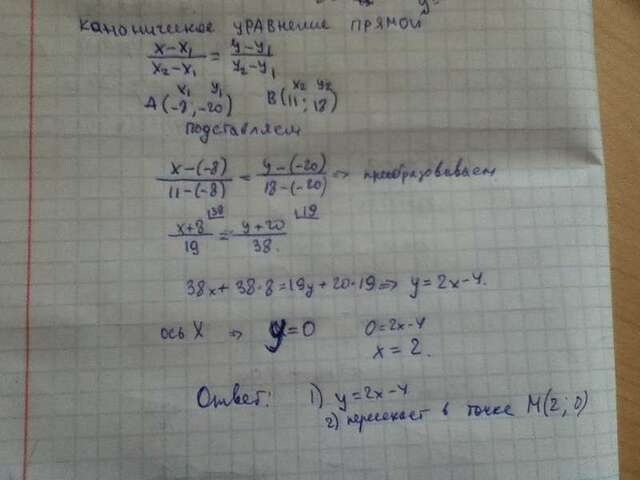 каноническое уравнение прямой
x-x₁/x₂-x₁ = y-y₁/y₂-y₁
x₁ y₁ x₂ y₂
A(-8; -20) B(11; 18)
подставляем
x-(-8)/11-(-8) = y-(-20)/18-(-20) => преобразовываем.
x+8/19 = y+20/38.
38x+38·8=19y+20·19 => y=2x-4.
ось X => y=0 0=2x-4
x=2.
Ответ: 1) y=2x-4
2) пересекает в точке M(2; 0)